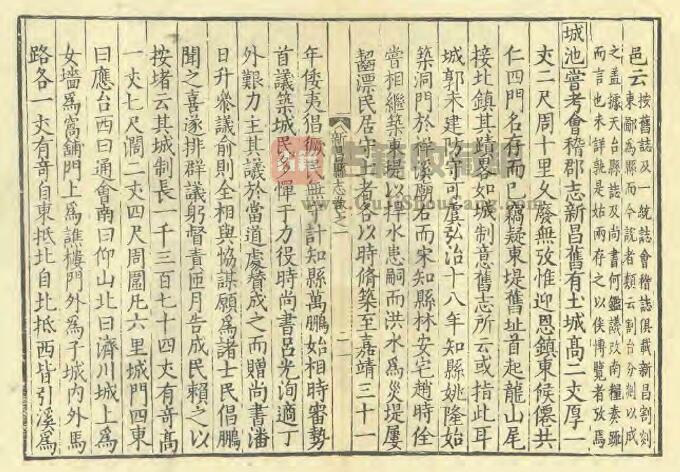 邑云按舊誌及一統誌會稽誌俱載新昌割剡
東鄙為縣而今談者類云割台分剡以成
之盖據天台縣誌及尚書何鑑議改南糧奏疏
而言也未詳孰是姑兩存之以俟博覽者攷焉
城池嘗考會稽郡志新昌舊有土城高二丈厚一
丈二尺周十里久廢無攷惟迎恩鎮東候僊共
仁四門名存而已竊疑東堤舊址首起龍山尾
接北鎮其蹟畧如城制意舊志所云或指此耳
城郭未建防守可虞弘治十八年知縣姚隆始
築洞門於祥溪廟右而宋知縣林安宅趙時佺
嘗相繼築東堤以捍水患嗣而洪水為災堤屢
齧漂民居守土者各以時脩築至嘉靖三十一
新昌縣志卷之
二
年倭夷倡獗民無守計知縣萬鵬始相時審勢
首議築城民多憚于力役時尚書呂光洵適丁
外艱力主其議於當道處贊成之而贈尚書潘
日升衆議俞則全相與協謀願為諸士民倡鵬
聞之喜遂排群議躬督責匝月告成民賴之以
按堵云其城制長一千三百七十四丈有奇高
一丈七尺濶二丈四尺周圍凡六里城門四東
曰應台西曰通會南曰仰山北曰濟川城上為
女墻為窩舖門上為譙樓門外為子城內外馬
路各一丈有奇自東抵北自北抵西皆引溪為